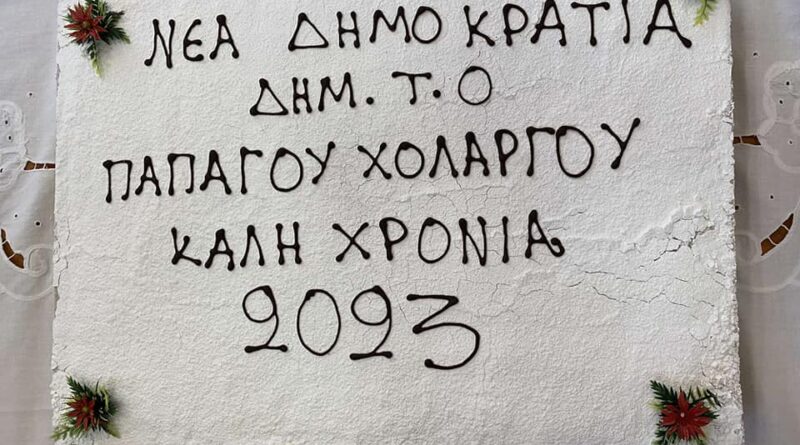 ΝΕΑ ΔΗΜΟΚΡΑΤΙΑ
ΔΗΜ. Τ. Ο
ΠΑΠΑΓΟΥ ΧΟΛΑΡΓΟΥ
ΚΑΛΗ ΧΡΟΝΙΑ
2023